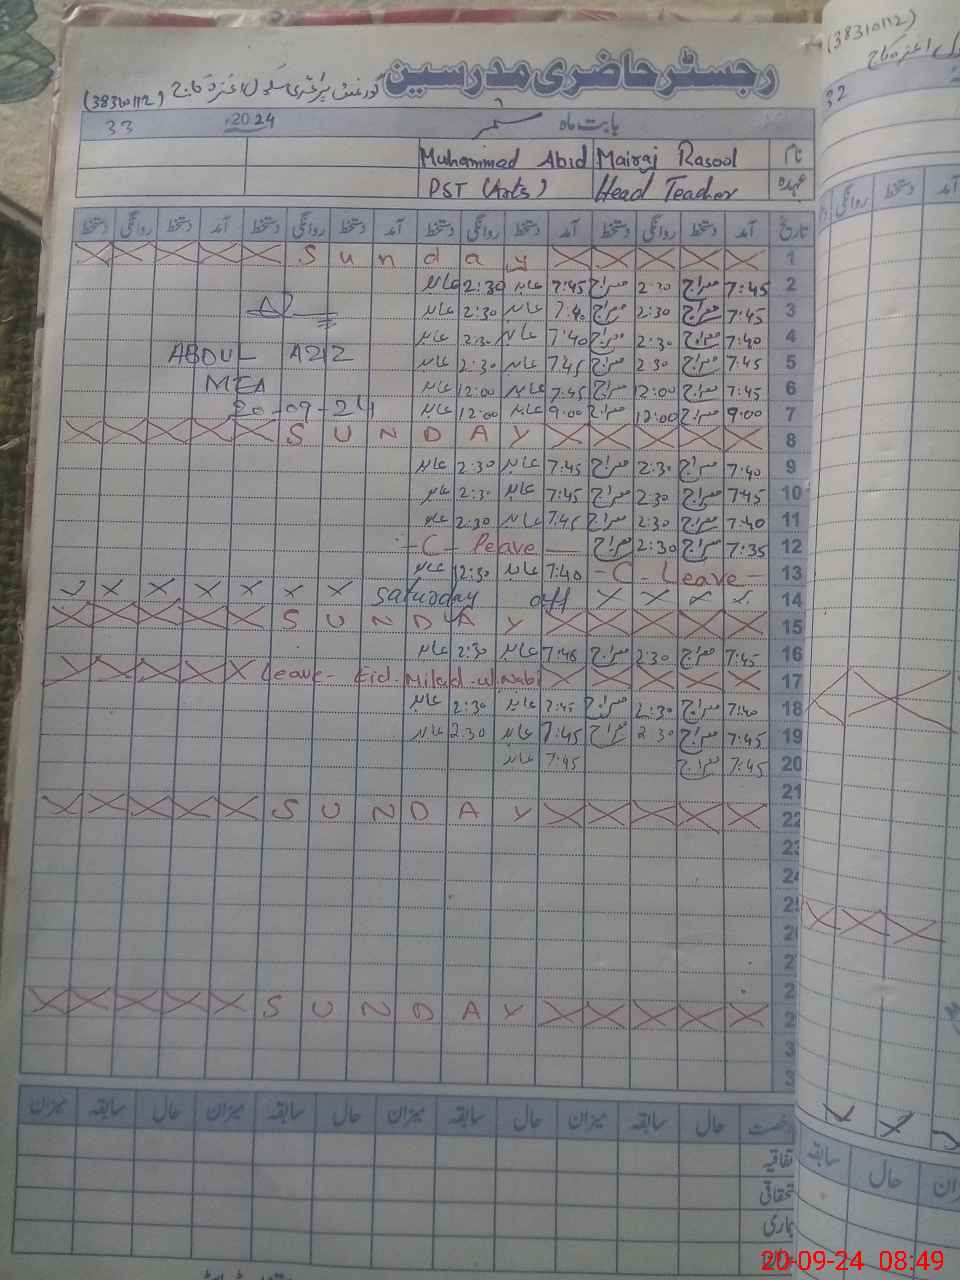 رجسٹر حاضری مدرسین
(38310112)
بابت ماہ ستمبر 2024ء 33
نام Mairaj Rasool Muhammad Abid
عہدہ Head Teacher PST (Arts)
تاریخ آمد دستخط روانگی دستخط آمد دستخط روانگی دستخط آمد دستخط روانگی دستخط آمد دستخط روانگی دستخط
1 Sunday
2 7:45 معراج 2:30 معراج 7:45 عابد 2:30 عابد
3 7:45 معراج 2:30 معراج 7:40 عابد 2:30 عابد
4 7:40 معراج 2:30 معراج 7:40 عابد 2:30 عابد
5 7:45 معراج 2:30 معراج 7:45 عابد 2:30 عابد
6 7:45 معراج 12:00 معراج 7:45 عابد 12:00 عابد
7 9:00 معراج 12:00 معراج 9:00 عابد 12:00 عابد
ABDUL AZIZ
MEA
20-09-24
8 SUNDAY
9 7:40 معراج 2:30 معراج 7:45 عابد 2:30 عابد
10 7:45 معراج 2:30 معراج 7:45 عابد 2:30 عابد
11 7:40 معراج 2:30 معراج 7:45 عابد 2:30 عابد
12 7:35 معراج 2:30 معراج -C- Leave
13 -C- Leave- 7:40 عابد 12:30 عابد
14 Saturday off
15 SUNDAY
16 7:45 معراج 2:30 معراج 7:46 عابد 2:30 عابد
17 Leave- Eid-Milad-ul Nabi
18 7:40 معراج 2:30 معراج 7:45 عابد 2:30 عابد
19 7:45 معراج 2:30 معراج 7:45 عابد 2:30 عابد
20 7:45 معراج 7:45 عابد
21
22 SUNDAY
23
24
SUNDAY
حال سابقہ میزان حال سابقہ میزان حال سابقہ میزان حال سابقہ میزان
(38310112)
32
روانگی دستخط
سابقہ حال
20-09-24 08:49